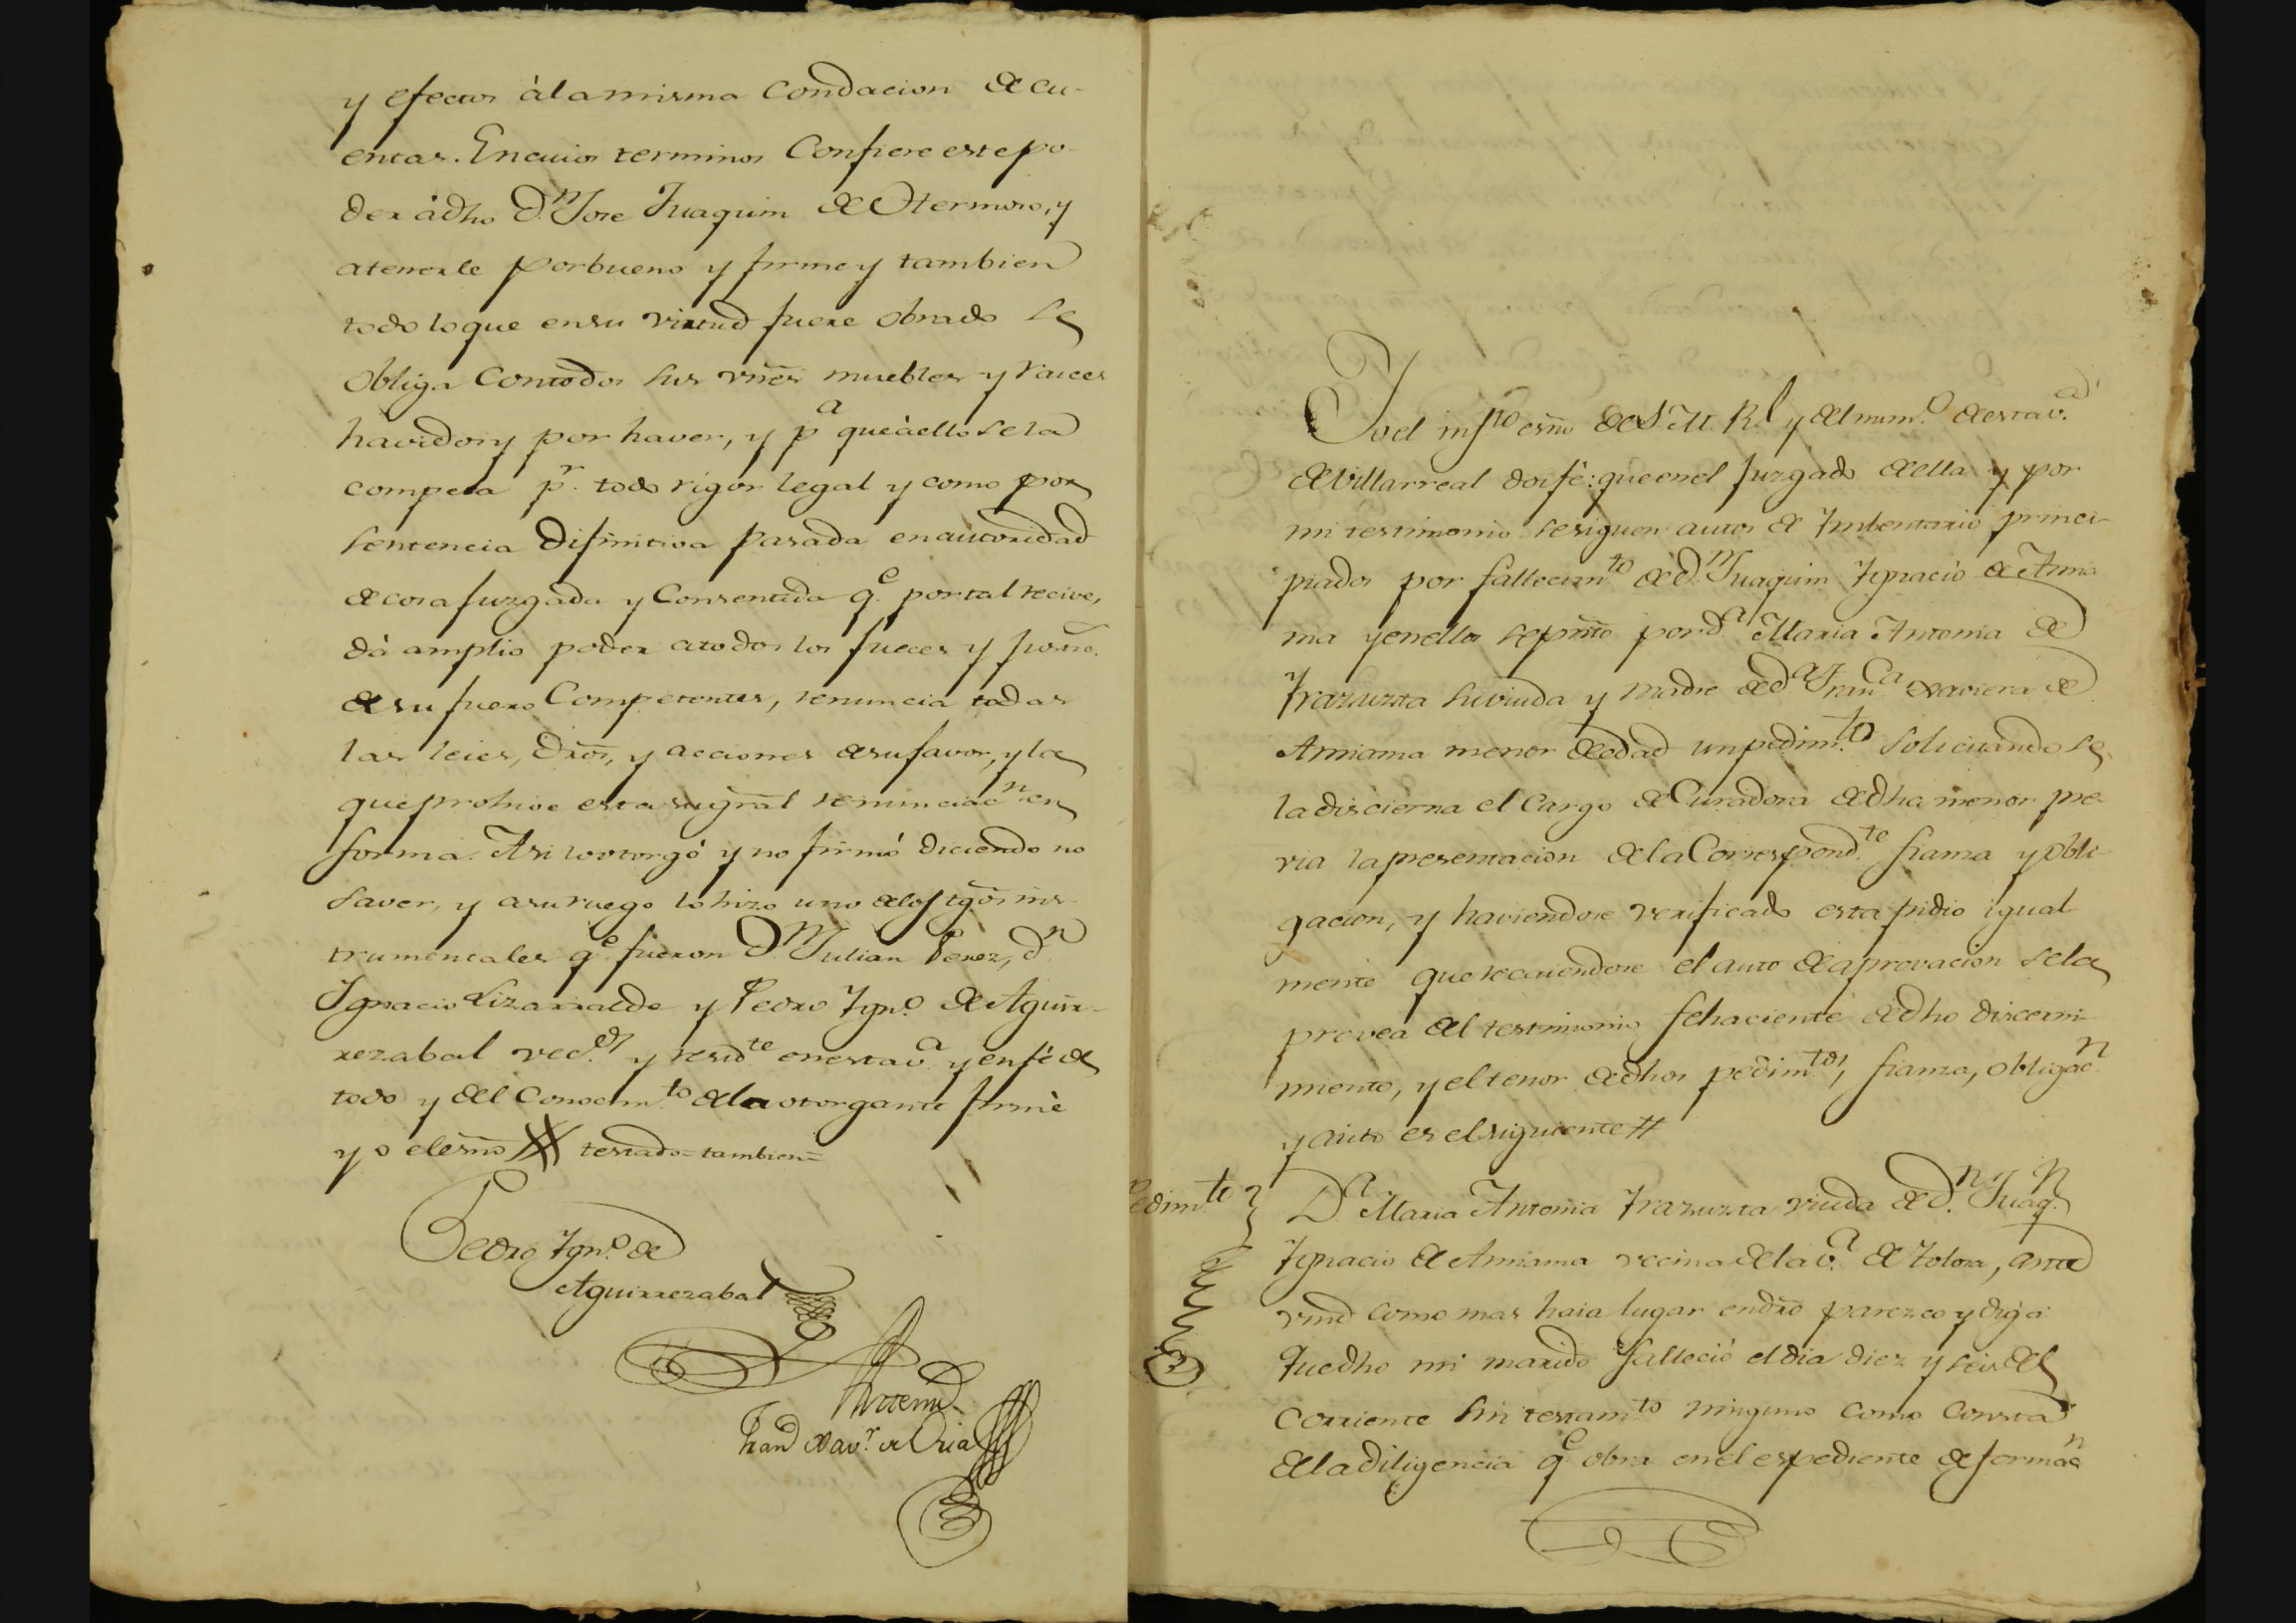 y efectos à la misma Condacion de cu-
entas. En cuios terminos Confiere este po-
der à dho D.n Jose Juaquin de Otermoro, y
a tenerle por bueno y firme y tambien
todo lo que en su virtud fuere obrado se
obliga Con todos sus vnēs muebles y raices
havidos y por haver, y p.a que à ello se la
compela p.r todo rigor legal y como por
sentencia difinitiva pasada en autoridad
de cosa juzgada y Consentida q.e por tal recive,
dà amplio poder a todos los jueces y
de su fuero Competentes, renuncia todas
las leies, drōs, y acciones de su favor, y la
que prohive esta su grāl renunciac.n en
forma. Asi lo otorgó y no firmó diciendo no
saver, y a su ruego lo hizo uno de los tgōs ins-
trumentales q.e fueron D.n Julian Perez, d.n
Ignacio Lizarralde y Pedro Ign.o de Aguir-
rezabal vec.os y resid.te en esta v.a y en fé de
todo y del Conocim.to de la otorgante firmè
yo el esnō # testado = tambien =
Pedro Ign.o de
Aguirrezabal
Ante mi
Fran.co Xav.r de Oria
Yo el inf.to esnō de S. M. R.l y del num.o de esta v.a
de Villarreal doi fè: que en el Juzgado de ella y por
mi testimonio se siguen autos de Imbentario princi-
piados por fallecim.to de d.n Juaquin Ignacio de Amia
ma y en ellos se pntō por d.a Maria Antonia de
Irazuzta su viuda y madre de d.a Fran.ca Xaviera de
Amiama menor de edad un pedim.to solicitando se
la discierna el Cargo de Curadora de dha menor pre-
via la presentacion de la Correspond.te fianza y obli-
gacion, y haviendose verificado esta pidio igual
mente que recaiendose el auto de aprovacion se la
provea del testimonio fehaciente de dho discerni-
miento, y el tenor de dhos pedim.tos, fianza, obligac.n
y auto es el siguiente #
Pedim.to } D.a Maria Antonia Irazuzta viuda de d.n Juaq.n
Ignacio de Amiama vecina de la v.a de Tolosa, ante
vmd como mas haia lugar en drō parezco y digo:
Que dho mi marido falleció el dia diez y seis del
corriente sin testam.to ninguno como Consta
de la diligencia q.e obra en el espediente de formac.n